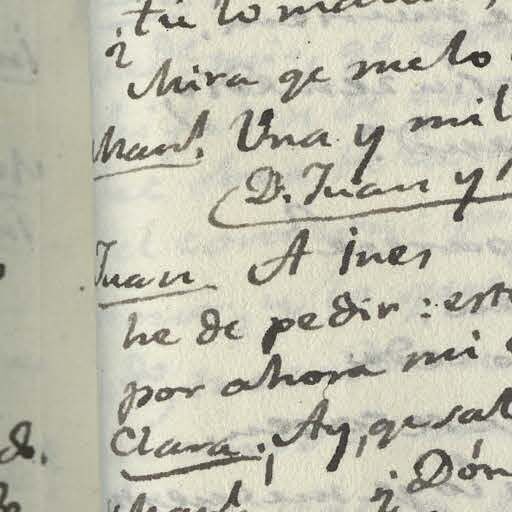 ¿tú lo
Mira qe me lo
Manl. Una y mil
D. Juan y
Juan A ines
he de pedir: est
por ahora mi
Clara. ¡Ay, qe sal
Manl. ¿Dón